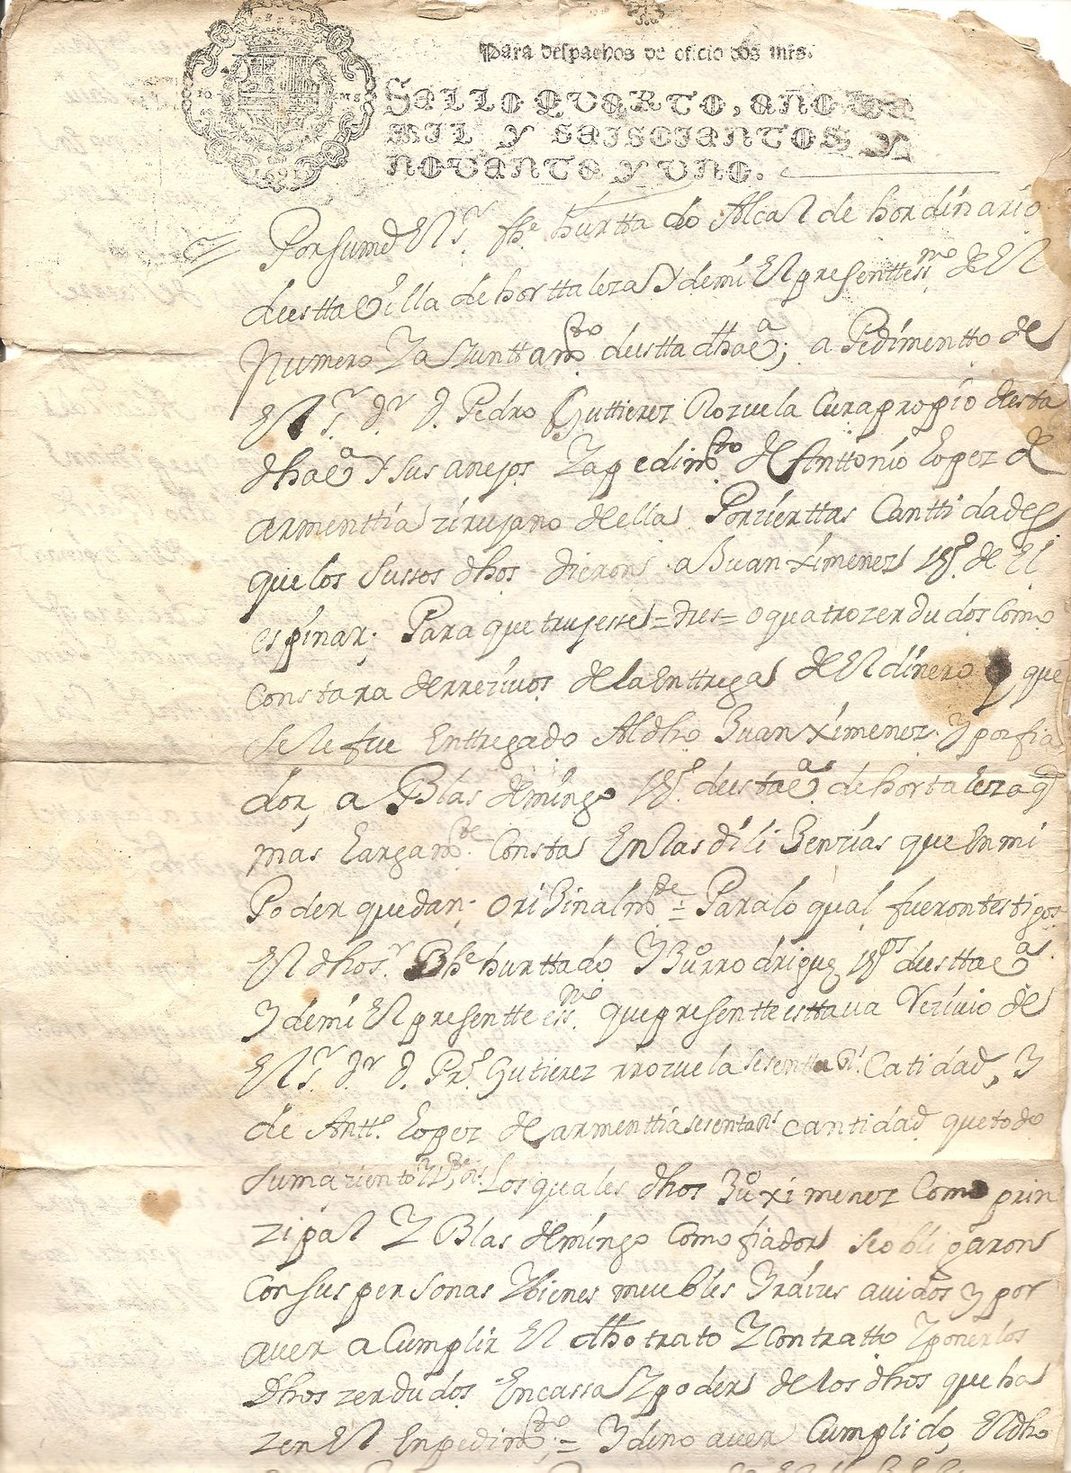 Para despachos de oficio dos mrs.
SELLO QVARTO, AÑO DE
MIL Y SEISCIENTOS Y
NOVENTA Y VNO.
1691
Por sumd El Sr. phe hurttado Alcalde hordinario
destta villa de horttaleza Y demi El presentte ssno de El
Numero Y aiunttamto destta dha va; a Pedimentto de
El Sr Dr D. Pedro Guttierez Rozuela Cura propio desta
dha va Y sus anejos Y a pedimto de Anttonio Lopez de
armenttia zirujano de ella Por zierttas Canttidades
que los sussos dhos dieron a Juan Ximenez vº de El
espinar; Para que trujesse = dies = o quatro zerdudos Como
Constara de rrezivos de la Enttrega de El dinero que
se le fue Enttregado Al dho Juan Ximenez y por fia
dor, a Blas demingo vº desta va de hortaleza q
mas Largamte Consta En las dilijenzias que En mi
Poder quedan orijinalmte = Para lo qual fueron testigos
El dho Sr Phe hurttado Y Juº rrodriguez vos desttava
Y de mi El presentte essno que presentte esttava Rezivio de
El Sr Dr D. Pº Gutierez rrozuela sesentta Rs Catidad, Y
de Antto Lopez de armenttia sesenta Rs cantidad que todo
suma ziento Y Los quales dhos Juº ximenez Como prin
zipal Y Blas demingo Como fiador se obligaron
Con sus personas Y bienes muebles Y raizes avidos y por
aver a Cumplir El dho trato Y Contratto Y poner los
Dhos zerdudos En cassa Y poder de los dhos que ha
zen El Enpedimto = Y di no aver Cumplido El dho